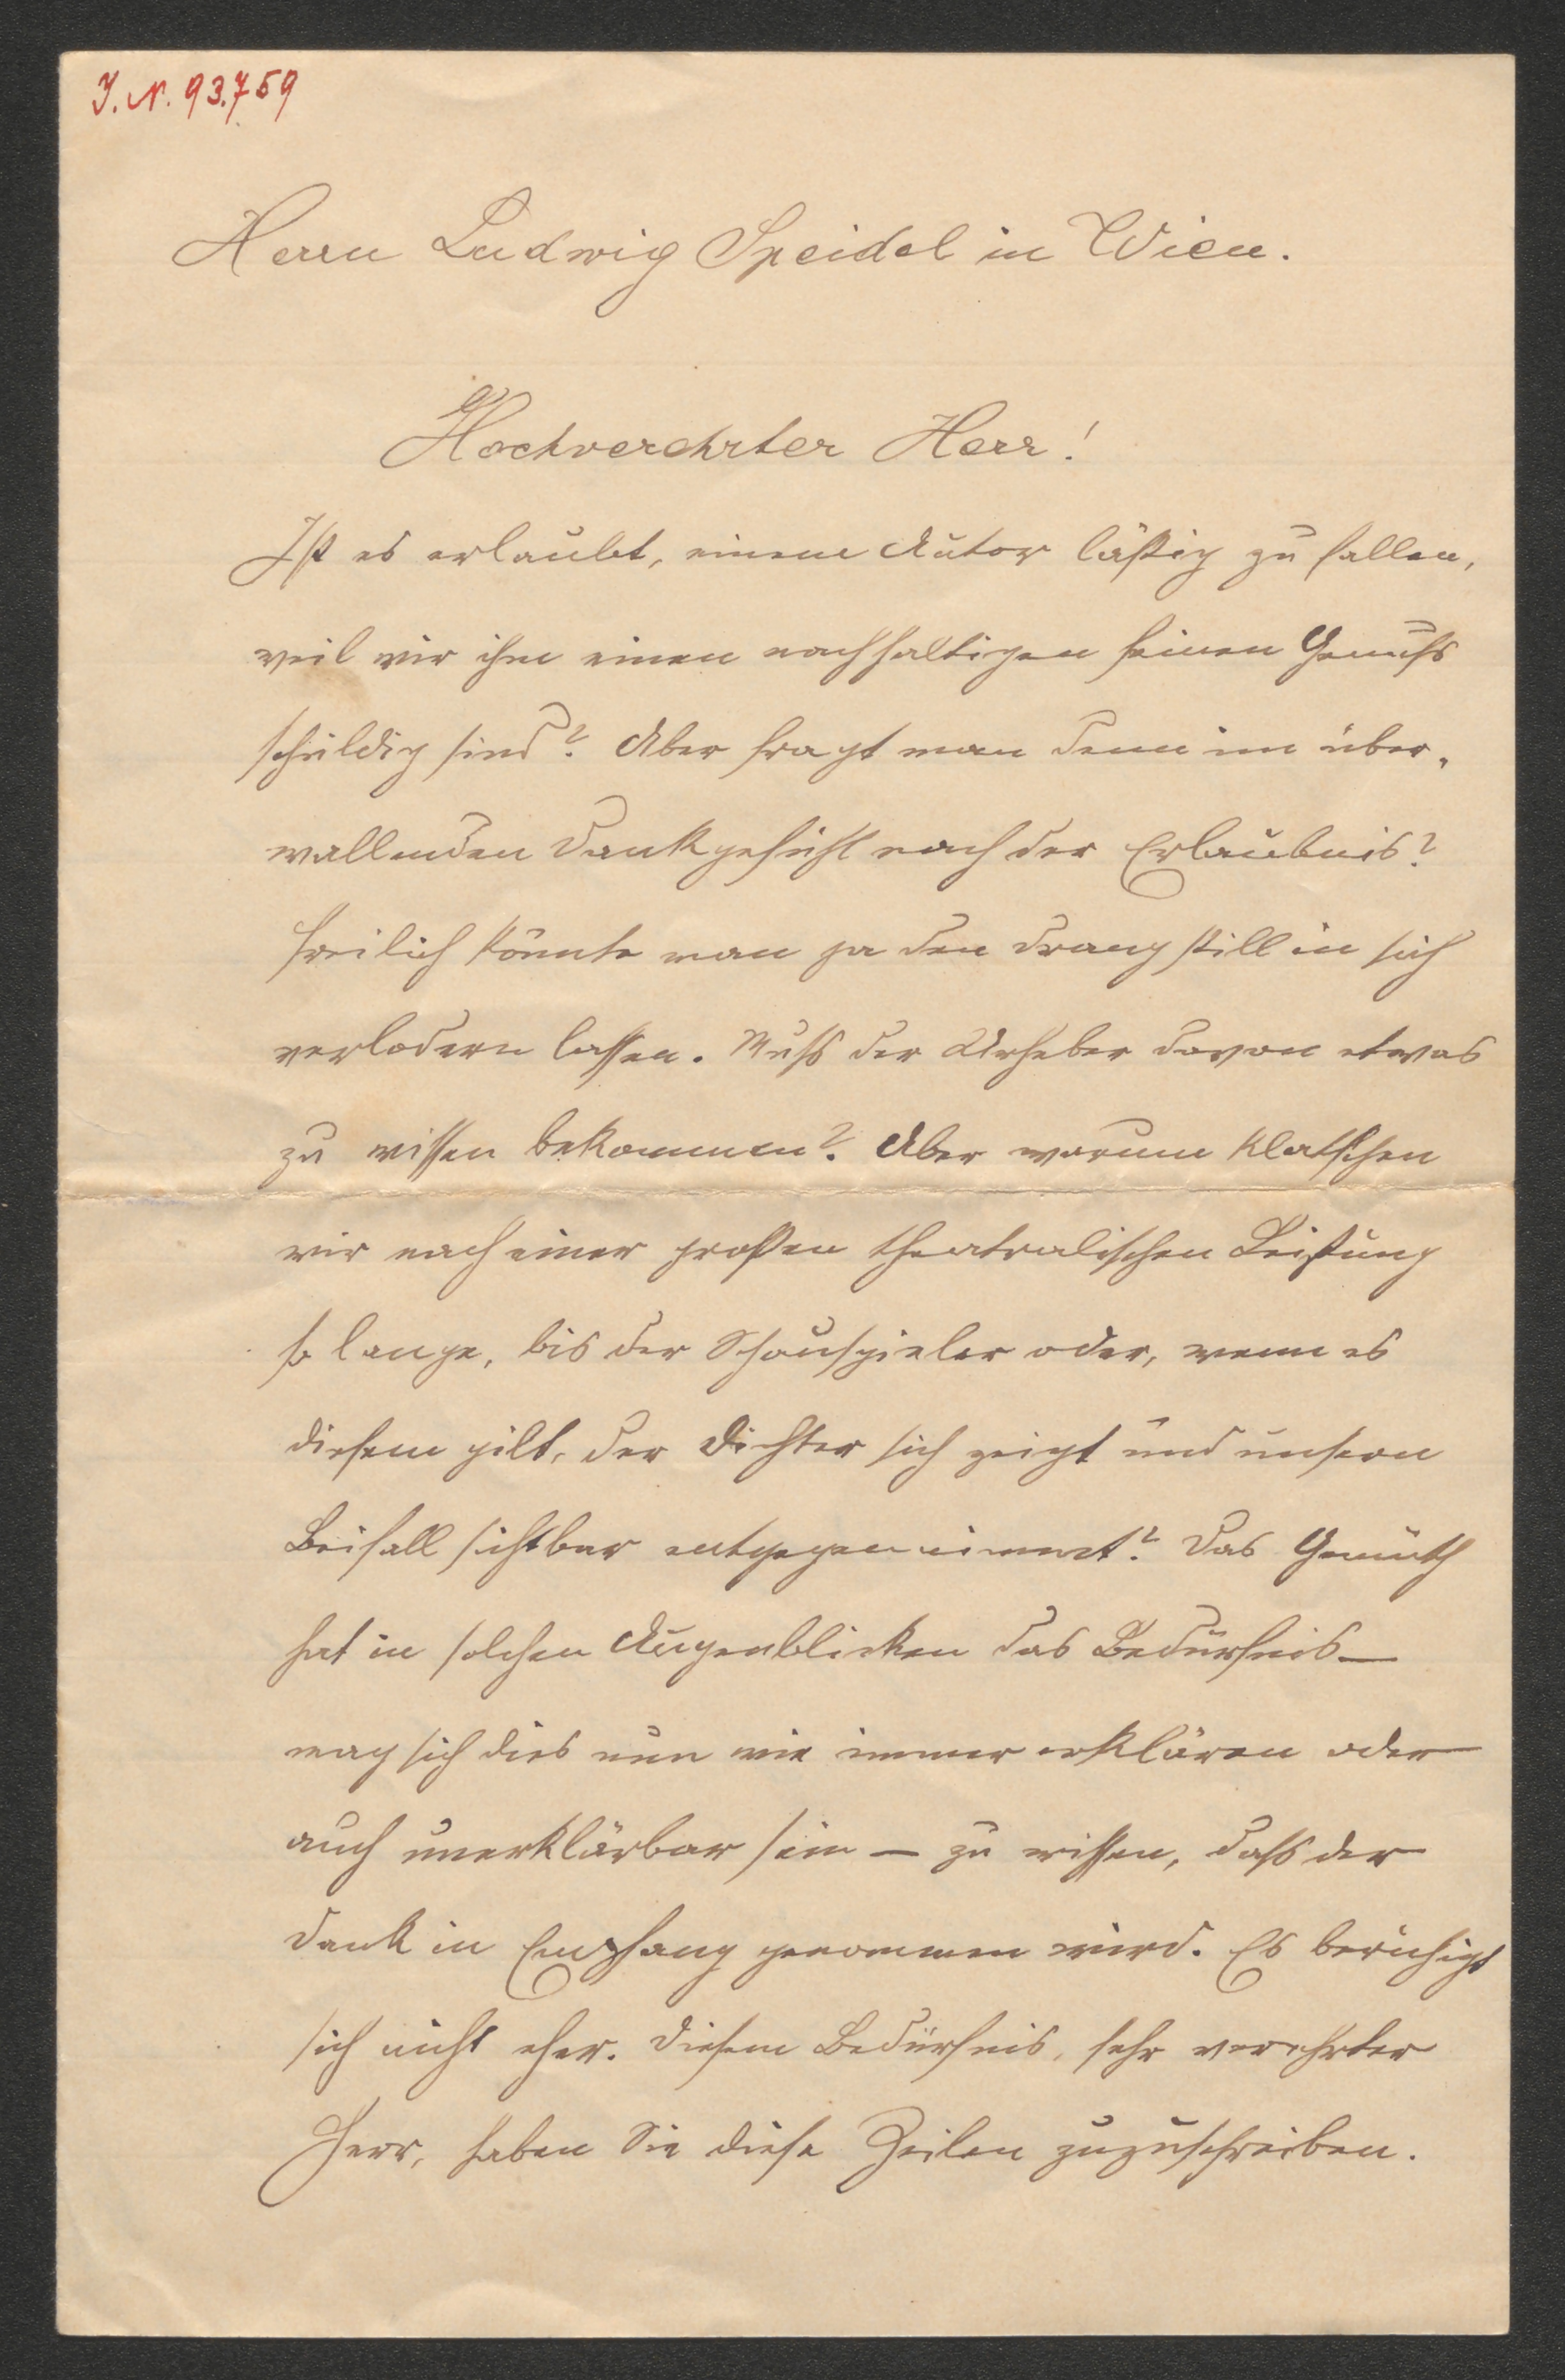 J. N. 93.759
Herrn Ludwig Speidel in Wien.
Hochverehrter Herr!
Ist es erlaubt, einem Autor lästig zu fallen,
weil wir ihm einen nachhaltigen feinen Genuss
schuldig sind? Aber fragt man denn im über-
wallenden Dankgefühl nach der Erlaubnis?
Freilich könnte man ja den Drang still in sich
verlodern lassen. Muss der Urheber davon etwas
zu wissen bekommen? Aber warum klatschen
wir nach einer großen theatralischen Leistung
so lange, bis der Schauspieler oder, wenn es
diesem gilt, der Dichter sich zeigt und unsern
Beifall sichtbar entgegennimmt? Das Gemüth
hat in solchen Augenblicken das Bedürfnis —
mag sich dies nun wie immer erklären oder
auch unerklärbar sein — zu wissen, dass der
Dank in Empfang genommen wird. Es beruhigt
sich nicht eher. Diesem Bedürfnis, sehr verehrter
Herr, haben Sie diese Zeilen zuzuschreiben.